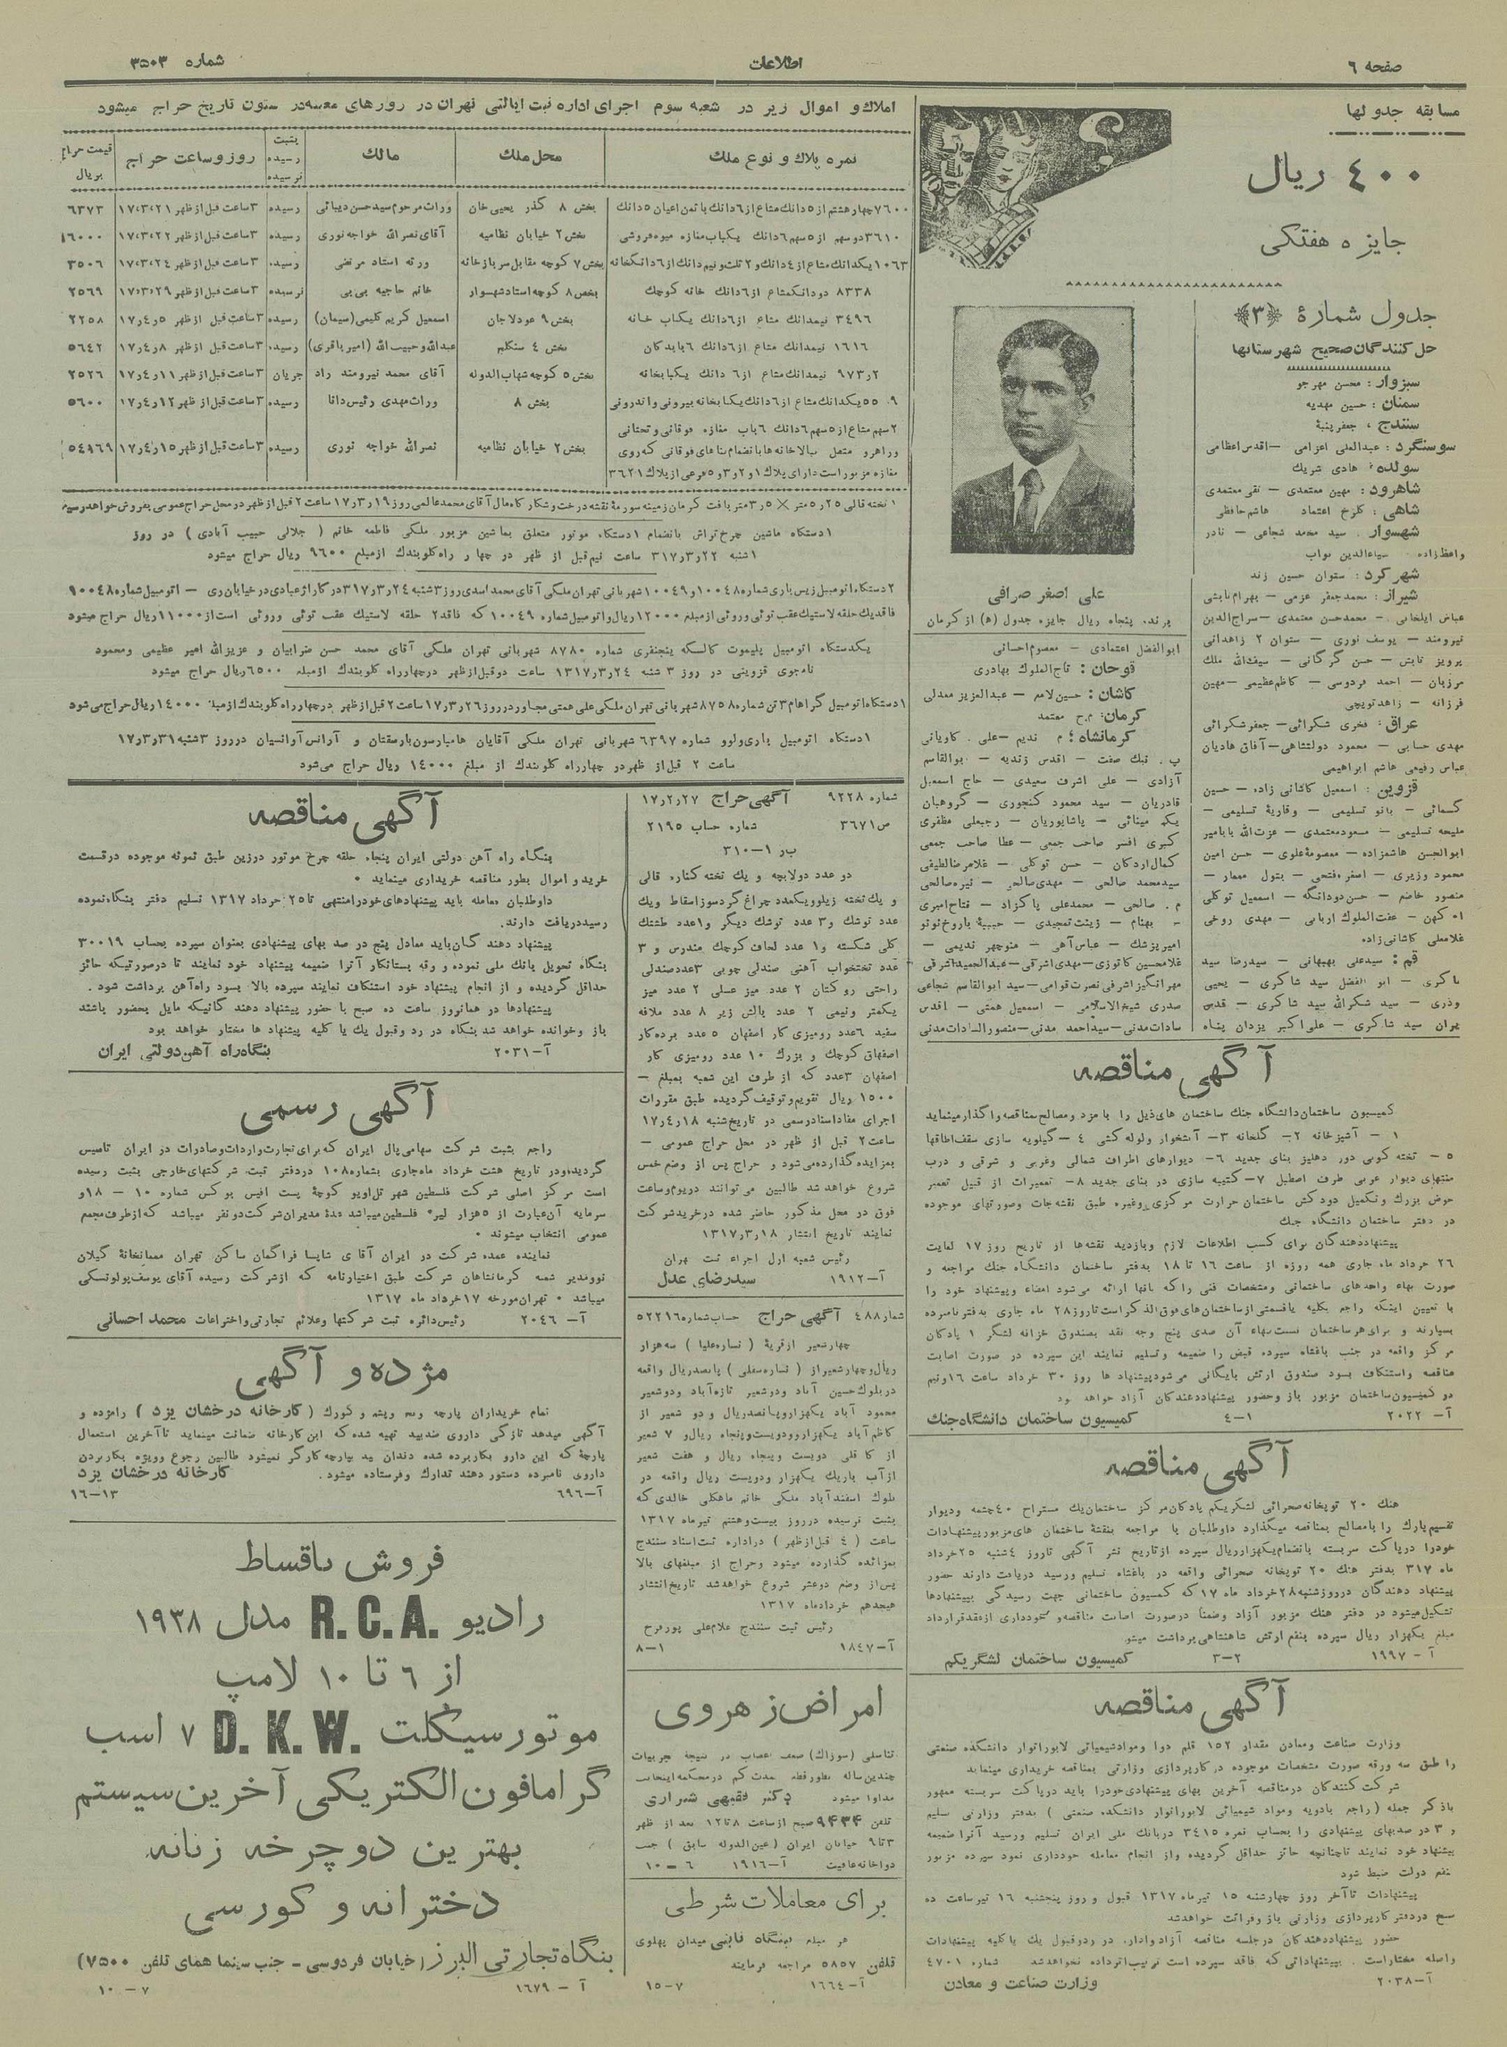 صفحه ٦
اطلاعات
شماره ۳۵۰۳
مسابقه جدولها
۴۰۰ ریال
جایزه هفتگی
جدول شمارهٔ «۳»
حل کنندگان صحیح شهرستانها
سبزوار: محسن مهرجو
سمنان: حسین مهدیه
سوسنگرد: عبدالعلی اعزامی — اقدس اعظامی
سولده: هادی شریك
شاهرود: مهین معتمدی — تقی معتمدی
شاهی: گلرخ اعتماد هاشم حافظی
شهسوار: سید محمد شجاعی — نادر
واعظ زاده
شهرکرد: ستوان حسین زند
شیراز: محمدجعفر عزمی — بهرام تابشی
نیرومند — یوسف نوری — ستوان ۲ زاهدانی
پرویز تابش — حسن گرگانی — سیف‌الله ملك
مرزبان — احمد فردوسی — کاظم عظیمی — مهین
عراق: فخری شکرائی — جعفر شکرائی
مهدی حسابی — محمود دولتشاهی — آفاق هادیان
عباس رفیعی هاشم ابراهیمی
قزوین: اسمعیل کاشانی زاده — حسین
ملیحه تسلیمی — مسعود معتمدی — عزت الله بابامیر
ابوالحسن هاشم‌زاده — معصومهٔ علوی — حسن امین
محمود وزیری — اصغر فتحی — بتول معمار —
منصور خاضع — حسن دودانگه — اسمعیل توکلی
غلامعلی کاشانی زاده
قم: سیدعلی بهبهانی — سیدرضا سید
وذری — سید شکرالله سید شاکری — قدسی
پیران سید شاکری — علی اکبر یزدان پناه
علی اصغر صرافی
برنده پنجاه ریال جایزه جدول (۵) از کرمان
ابوالفضل اعتمادی — معصوم احسانی
قوچان: تاج الملوك بهادری
کاشان: حسین لامع — عبدالعزیز معدلی
کرمان: م.ح معتمد
کرمانشاه: م ندیم — علی کاویانی
آزادی — علی اشرف سعیدی — حاج اسمعیل
قادریان — سید محمود گنجوری — گروهبان
کبری افسر صاحب جمعی — عطا صاحب جمعی
کمال اردکان — حسن توکلی — غلامرضا لطیفی
سیدمحمد صالحی — مهدی صالحی — نیره صالحی
م. صالحی — محمدعلی پاکزاد — فتاح امیری
امیر پزشك — عباس آهی — منوچهر ندیمی —
غلامحسین کاتوزی — مهدی اشرفی — عبدالحمید اشرفی
مهرانگیز اشرفی نصرت قوامی — سید ابوالقاسم شجاعی
صدری شیخ الاسلامی — اسمعیل همتی — اقدس
سادات مدنی — سید احمد مدنی — منصور السادات مدنی
املاك و اموال زیر در شعبه سوم اجرای اداره ثبت ایالتی تهران در روزهای معینه در ستون تاریخ حراج میشود
نمره پلاك و نوع ملك
محل ملك
مالك
بثبت رسیده نرسیده
روز و ساعت حراج
قیمت حراج بریال
۷۶۰۰ چهار هشتم از ۵ دانك مشاع از ٦ دانك باثمن اعیان ۵ دانك
بخش ۸ گذر یحیی خان
وراث مرحوم سیدحسن دیبائی
رسیده
۳ ساعت قبل از ظهر ۱۷٫۳٫۲۱
۶۳۷۳
۳۶۱۰ دوسهم از ۵ سهم ٦ دانك یکباب مغازه میوه فروشی
بخش ۲ خیابان نظامیه
آقای نصرالله خواجه نوری
رسیده
۳ ساعت قبل از ظهر ۱۷٫۳٫۲۲
۱۶۰۰۰
۱۰۶۳ یکدانك مشاع از ٤ دانك و ۲ ثلث و نیم دانك از ٦ دانك خانه
بخش ۷ کوچه مقابل سربازخانه
ورثه استاد مرتضی
رسیده
۳ ساعت قبل از ظهر ۱۷٫۳٫۲٤
۳۵۰۶
۸۳۳۸ دو دانك مشاع از ٦ دانك خانه كوچك
بخش ۸ کوچه استاد شهسوار
خانم حاجیه بی بی
نرسیده
۳ ساعت قبل از ظهر ۱۷٫۳٫۲۹
۲۵۶۹
۳٤۹٦ نیمدانك مشاع از ٦ دانك یکباب خانه
بخش ۹ عودلاجان
اسمعیل کریم کلیمی (سیمان)
رسیده
۳ ساعت قبل از ظهر ۱۷٫٤٫۵
۲۲۵۸
۱٦۱٦ نیمدانك مشاع از ٦ دانك ٦ باب دکان
بخش ٤ سنگلج
عبدالله و حبیب الله (امیر باقری)
رسیده
۳ ساعت قبل از ظهر ۱۷٫٤٫۸
۵٦٤۲
۲ر۹۷۳ نیمدانك مشاع از ٦ دانك یکبابخانه
بخش ۵ کوچه شهاب الدوله
آقای محمد نیرومند راد
جریان
۳ ساعت قبل از ظهر ۱۷٫٤٫۱۱
۲۵۲٦
۵۵۰۹ یکدانك مشاع از ٦ دانك یکبابخانه بیرونی و اندرونی
بخش ۸
وراث مهدی رئیس دانا
رسیده
۳ ساعت قبل از ظهر ۱۷٫٤٫۱۲
۵٦۰۰
۲ سهم مشاع از ۵ سهم ٦ دانك ٦ باب مغازه فوقانی و تحتانی
وراهرو متصل ببالاخانه ها بانضمام بناهای فوقانی که روی
مغازه مزبور است دارای پلاك ۱ و ۲ و ۳ و ۵ فرعی از پلاك ۳٦۲۱
بخش ۲ خیابان نظامیه
نصرالله خواجه نوری
رسیده
۳ ساعت قبل از ظهر ۱۷٫٤٫۱۵
۵٤۹٦۹
۱ دستگاه ماشین چرخ تراش بانضمام ۱ دستگاه موتور متعلق بماشین مزبور ملکی فاطمه خانم (جلالی حبیب آبادی) در روز
۱شنبه ۲۲ر۳ر۳۱۷ ساعت نیم قبل از ظهر در چهار راه گلوبندك از مبلغ ۹٦۰۰ ریال حراج میشود
۲ دستگاه اتومبیل زیس باری شماره ۱۰۰٤۸ و ۱۰۰٤۹ شهربانی تهران ملکی آقای محمد اسدی روز ۳شنبه ۲٤ر۳ر۳۱۷ در گاراژ عبادی در خیابان ری — اتومبیل شماره ۱۰۰٤۸
فاقد یك حلقه لاستیك عقب توئی وروئی از مبلغ ۱۲۰۰۰ ریال و اتومبیل شماره ۱۰۰٤۹ که فاقد ۲ حلقه لاستیك عقب توئی وروئی است از ۱۱۰۰۰ ریال حراج میشود
یکدستگاه اتومبیل پلیموت کالسکه پنجنفری شماره ۸۷۸۰ شهربانی تهران ملکی آقای محمد حسن ضرابیان و عزیزالله امیر عظیمی و محمود
نامجوی قزوینی در روز ۳ شنبه ۲٤ر۳ر۱۳۱۷ ساعت دوقبل از ظهر در چهار راه گلوبندك از مبلغ ٦۵۰۰ ریال حراج میشود
۱ دستگاه اتومبیل گراهام ۳ تن شماره ۸۷۵۸ شهربانی تهران ملکی علی همتی مجاور در روز ۲٦ر۳ر۱۷ ساعت ۲ قبل از ظهر در چهار راه گلوبندك از مبلغ ۱٤۰۰۰ ریال حراج می شود
۱ دستگاه اتومبیل باری ولوو شماره ٦۳۹۷ شهربانی تهران ملکی آقایان هامبارسون بارسقتان و آرانس آوانسیان در روز ۳شنبه ۳۱ر۳ر۱۷
ساعت ۲ قبل از ظهر در چهار راه گلوبندك از مبلغ ۱٤۰۰۰ ریال حراج می شود
آگهی مناقصه
بنگاه راه آهن دولتی ایران پنجاه حلقه چرخ موتور درزین طبق نمونه موجوده در قسمت
خرید و اموال بطور مناقصه خریداری مینماید.
داوطلبان معامله باید پیشنهادهای خود را منتهی تا ۲۵ خرداد ۱۳۱۷ تسلیم دفتر بنگاه نموده
رسید دریافت دارند.
پیشنهاد دهندگان باید معادل پنج در صد بهای پیشنهادی بعنوان سپرده بحساب ۳۰۰۱۹
بنگاه تحویل بانك ملی نموده و رقبه بستانکار آنرا ضمیمه پیشنهاد خود نمایند تا در صورتیکه حائز
حداقل گردیده و از انجام پیشنهاد خود استنکاف نمایند سپرده بالا بسود راه آهن برداشت شود.
پیشنهادها در همانروز ساعت ده صبح با حضور پیشنهاد دهندگانیکه مایل بحضور باشند
باز و خوانده خواهد شد بنگاه در رد و قبول یك یا کلیه پیشنهاد ها مختار خواهد بود
آ—۲۰۳۱ بنگاه راه آهن دولتی ایران
آگهی رسمی
راجع بثبت شرکت سهامی پال ایران که برای تجارت واردات و صادرات در ایران تاسیس
گردیده و در تاریخ هشت خرداد ماه جاری بشماره ۱۰۸ در دفتر ثبت شرکتهای خارجی بثبت رسیده
است مرکز اصلی شرکت فلسطین شهر تل اویو کوچهٔ پست افیس بوکس شماره ۱۰ — ۱۸ و
سرمایه آن عبارت از ۵ هزار لیره فلسطین میباشد عدهٔ مدیران شرکت دو نفر میباشد که از طرف مجمع
عمومی انتخاب میشوند.
نماینده عمده شرکت در ایران آقای شایسا فراگمان ساکن تهران مهمانخانهٔ گیلان
نو و مدیر شعبه کرمانشاهان شرکت طبق اختیارنامه که از شرکت رسیده آقای یوسف پولوتسکی
میباشد. تهران مورخه ۱۷ خرداد ماه ۱۳۱۷
آ— ۲۰٤٦ رئیس دائره ثبت شرکتها و علائم تجارتی و اختراعات محمد احسانی
مژده و آگهی
تمام خریداران پارچه و کورك (کارخانه درخشان یزد) را مژده و
آگهی میدهد تازگی داروی ضدبید تهیه شده که این کارخانه ضمانت مینماید تا آخرین استعمال
پارچهٔ که این دارو بکار برده شده دندان بید بپارچه کارگر نمیشود طالبین رجوع و ویژه بکار بردن
داروی نامبرده دستور دهند تدارك و فرستاده میشود. کارخانه درخشان یزد
آ—٦۹٦ ۱۳—۱٦
فروش باقساط
رادیو R.C.A. مدل ۱۹۳۸
از ٦ تا ۱۰ لامپ
موتور سیکلت D.K.W. ۷ اسب
گرامافون الکتریکی آخرین سیستم
بهترین دوچرخه زنانه
دخترانه و کورسی
بنگاه تجارتی البرز (خیابان فردوسی — جنب سینما همای تلفن ۷۵۰۰)
آ — ۱٦۷۹ ۷—۱۰
شماره ۹۲۲۸ آگهی حراج ۲۷ر۲ر۱۷
ص ۳٦۷۱ شماره حساب ۲۱۹۵
ب ر ۱—۳۱۰
دو عدد دولابچه و یك تخته کناره قالی
و یك تخته زیلو و یکعدد چراغ گردسوز اسقاط و یك
عدد توشك و ۳ عدد توشك دیگر و ۱ عدد طشتك
گلی شکسته و ۱ عدد لحاف کوچك مندرس و ۳
عدد تختخواب آهنی صندلی چوبی ۳ عدد صندلی
راحتی روکتان ۲ عدد میز عسلی ۲ عدد میز
یکمتر ونیمی ۲ عدد بالش زیر ۸ عدد ملافه
سفید ٦ عدد رومیزی کار اصفهان ۵ عدد پرده کار
اصفهان کوچك و بزرك ۱۰ عدد رومیزی کار
اصفهان ۳ عدد که از طرف این شعبه بمبلغ —
۱۵۰۰ ریال تقویم و توقیف گردیده طبق مقررات
اجرای مفاد اسناد رسمی در تاریخ شنبه ۱۸ر٤ر۱۷
ساعت ۲ قبل از ظهر در محل حراج عمومی —
بمزایده گذارده می شود و حراج پس از وضع خمس
شروع خواهد شد طالبین می توانند در یوم و ساعت
فوق در محل مذکور حاضر شده در خرید شرکت
نمایند تاریخ انتشار ۱۸ر۳ر۱۳۱۷
رئیس شعبه اول اجراء ثبت تهران
آ—۱۹۱۲ سیدرضای عدل
شماره ٤۸۸ آگهی حراج حساب شماره ۵۲۲۱٦
چهار شعیر از قریهٔ (نساره علیا) سه هزار
ریال و چهار شعیر از (نساره سفلی) پانصد ریال واقعه
در بلوك حسین آباد و در شعیر تازه آباد و دو شعیر
محمود آباد یکهزار و پانصد ریال و دو شعیر از
کاظم آباد یکهزار و دویست و پنجاه ریال و ۷ شعیر
بلوك اسفند آباد ملکی خانم ماهگلی خالدی که
بثبت نرسیده در روز بیست و هشتم تیر ماه ۱۳۱۷
ساعت (٤ قبل از ظهر) در اداره ثبت اسناد سنندج
بمزائده گذارده میشود و حراج از مبلغهای بالا
پس از وضع دوعشر شروع خواهد شد تاریخ انتشار
هیجدهم خرداد ماه ۱۳۱۷
رئیس ثبت سنندج غلامعلی پورفرح
آ—۱۸٤۷ ۱—۸
امراض زهروی
تناسلی (سوزاك) ضعف اعصاب در نتیجه تجربیات
مداوا میشود دکتر فقیهی شیرازی
تلفن ۹٤۳٤ صبح از ساعت ۸ تا ۱۲ بعد از ظهر
۳ تا ۹ خیابان ایران (عین الدوله سابق) جنب
دواخانه عافیت آ—۱۹۱٦ ٦—۱۰
برای معاملات شرطی
هر مبلغ ببنگاه فابسی میدان پهلوی
تلفن ۵۸۵۷ مراجعه فرمایند
آ—۱٦٦٤ ۷—۱۵
آگهی مناقصه
کمیسیون ساختمان دانشگاه جنك ساختمان های ذیل را با مزد و مصالح بمناقصه واگذار مینماید
۱ — آشپزخانه ۲ — گلخانه ۳ — آبشخوار و لوله کشی ٤ — گیلویه سازی سقف اطاقها
۵ — تخته کوبی دور دهلیز بنای جدید ٦ — دیوارهای اطراف شمالی و غربی و شرقی و درب
منتهای دیوار غربی طرف اصطبل ۷ — کتیبه سازی در بنای جدید ۸ — تعمیرات از قبیل تعمیر
حوض بزرك و تکمیل دودکش ساختمان حرارت مرکزی و غیره طبق نقشه جات و صورتهای موجوده
در دفتر ساختمان دانشگاه جنك
پیشنهاد دهندگان برای کسب اطلاعات لازم و بازدید نقشه ها از تاریخ روز ۱۷ لغایت
۲٦ خرداد ماه جاری همه روزه از ساعت ۱٦ تا ۱۸ بدفتر ساختمان دانشگاه جنك مراجعه و
صورت بهاء واحدهای ساختمانی و مشخصات فنی را که بآنها ارائه می شود امضاء و پیشنهاد خود را
با تعیین اینکه راجع بکلیه یا قسمتی از ساختمان های فوق الذکر است تا روز ۲۸ ماه جاری بدفتر نامبرده
بسپارند و برای هر ساختمان نسبت ببهاء آن صدی پنج وجه نقد بصندوق خزانه لشگر ۱ پادگان
مرکز واقعه در جنب باغشاه سپرده قبض را ضمیمه و تسلیم نمایند این سپرده در صورت اصابت
مناقصه و استنکاف بسود صندوق ارتش بایگانی می شود پیشنهاد ها روز ۳۰ خرداد ساعت ۱٦ و نیم
در کمیسیون ساختمان مزبور باز و حضور پیشنهاد دهندگان آزاد خواهد بود
آ— ۲۰۲۲ ۱—٤ کمیسیون ساختمان دانشگاه جنك
آگهی مناقصه
هنك ۲۰ توپخانه صحرائی لشگر یکم پادگان مرکز ساختمان یك مستراح ٤۰ چشمه و دیوار
تقسیم پارك را با مصالح بمناقصه میگذارد داوطلبان با مراجعه بنقشهٔ ساختمان های مزبور پیشنهادات
خود را در پاکت سربسته بانضمام یکهزار ریال سپرده از تاریخ نشر آگهی تا روز ٤شنبه ۲۵ خرداد
ماه ۳۱۷ بدفتر هنك ۲۰ توپخانه صحرائی واقعه در باغشاه تسلیم و رسید دریافت دارند حضور
پیشنهاد دهندگان در روز شنبه ۲۸ خرداد ماه ۱۷ که کمسیون ساختمانی جهت رسیدگی بپیشنهادها
تشکیل میشود در دفتر هنك مزبور آزاد و ضمناً در صورت اصابت مناقصه و خودداری از عقد قرارداد
مبلغ یکهزار ریال سپرده بنفع ارتش شاهنشاهی برداشت میشود
آ — ۱۹۹۷ ۲—۳ کمیسیون ساختمان لشگر یکم
آگهی مناقصه
وزارت صناعت و معادن مقدار ۱۵۲ قلم دوا و مواد شیمیائی لابوراتوار دانشکده صنعتی
را طبق سه ورقه صورت مشخصات موجوده در کارپردازی وزارتی بمناقصه خریداری مینماید
شرکت کنندگان در مناقصه آخرین بهای پیشنهادی خود را باید در پاکت سربسته ممهور
باذکر جمله (راجع بادویه و مواد شیمیائی لابوراتوار دانشکده صنعتی) بدفتر وزارتی تسلیم
و ۳ در صد بهای پیشنهادی را بحساب نمره ۳٤۱۵ در بانك ملی ایران تسلیم و رسید آنرا ضمیمه
پیشنهاد خود نمایند تا چنانچه حائز حداقل گردیده و از انجام معامله خودداری نمود سپرده مزبور
بنفع دولت ضبط شود
پیشنهادات تا آخر روز چهارشنبه ۱۵ تیر ماه ۱۳۱۷ قبول و روز پنجشنبه ۱٦ تیر ساعت ده
صبح در دفتر کارپردازی وزارتی باز و قرائت خواهد شد
حضور پیشنهاد دهندگان در جلسه مناقصه آزاد و اداره در رد و قبول یك یا کلیه پیشنهادات
واصله مختار است. بپیشنهاداتی که فاقد سپرده است ترتیب اثر داده نخواهد شد شماره ٤۷۰۱
آ—۲۰۳۸ وزارت صناعت و معادن